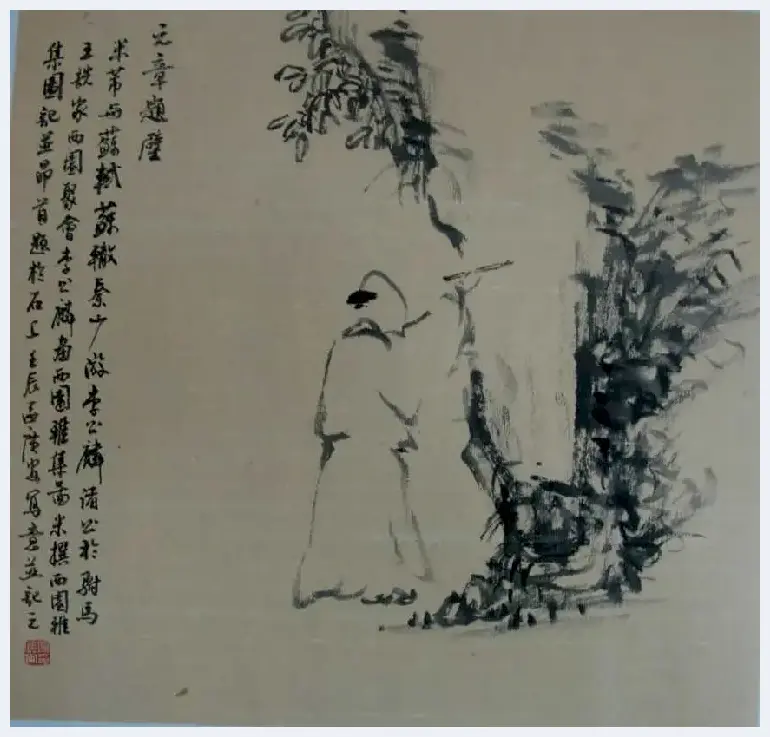 元章題壁
米芾与蘇軾蘇轍秦少游李公麟諸公於駙馬
王詵家西園聚會李公麟畵西園雅集啚米撰西園雅
集圖記並昂首題於石上壬辰寫意並記之